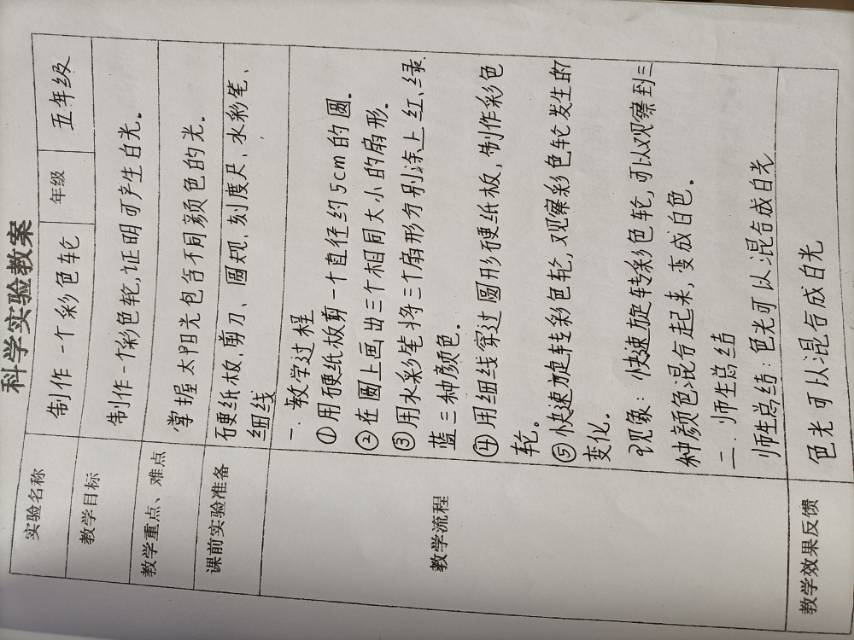 科学实验教案
实验名称 制作一个彩色轮 年级 五年级
教学目标 制作一个彩色轮,证明可产生白光。
教学重点、难点 掌握太阳光包含不同颜色的光。
课前实验准备 硬纸板、剪刀、圆规、刻度尺、水彩笔、
细线
教学流程
一. 教学过程
①用硬纸板剪一个直径约5cm的圆。
②在圆上画出三个相同大小的扇形。
③用水彩笔将三个扇形分别涂上红、绿、
蓝三种颜色。
④用细线穿过圆形硬纸板,制作彩色
轮。
⑤快速旋转彩色轮,观察彩色轮发生的
变化.
现象:快速旋转彩色轮,可以观察到三
种颜色混合起来,变成白色。
二. 师生总结
师生总结:色光可以混合成白光
教学效果反馈 色光可以混合成白光